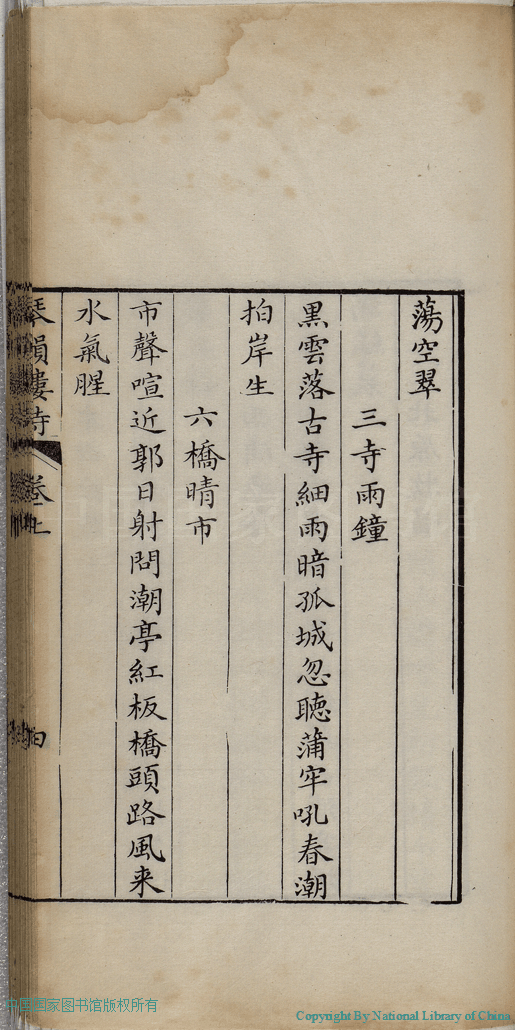 蕩空翠
三寺雨鐘
黒雲落古寺細雨暗孤城忽聴蒲牢吼春潮
拍岸生
六橋晴市
市聲喧近郭日射問潮亭紅板橋頭路風来
水氣腥
琴韻樓詩 卷上
中国国家图书馆版权所有
Copyright By National Library of China